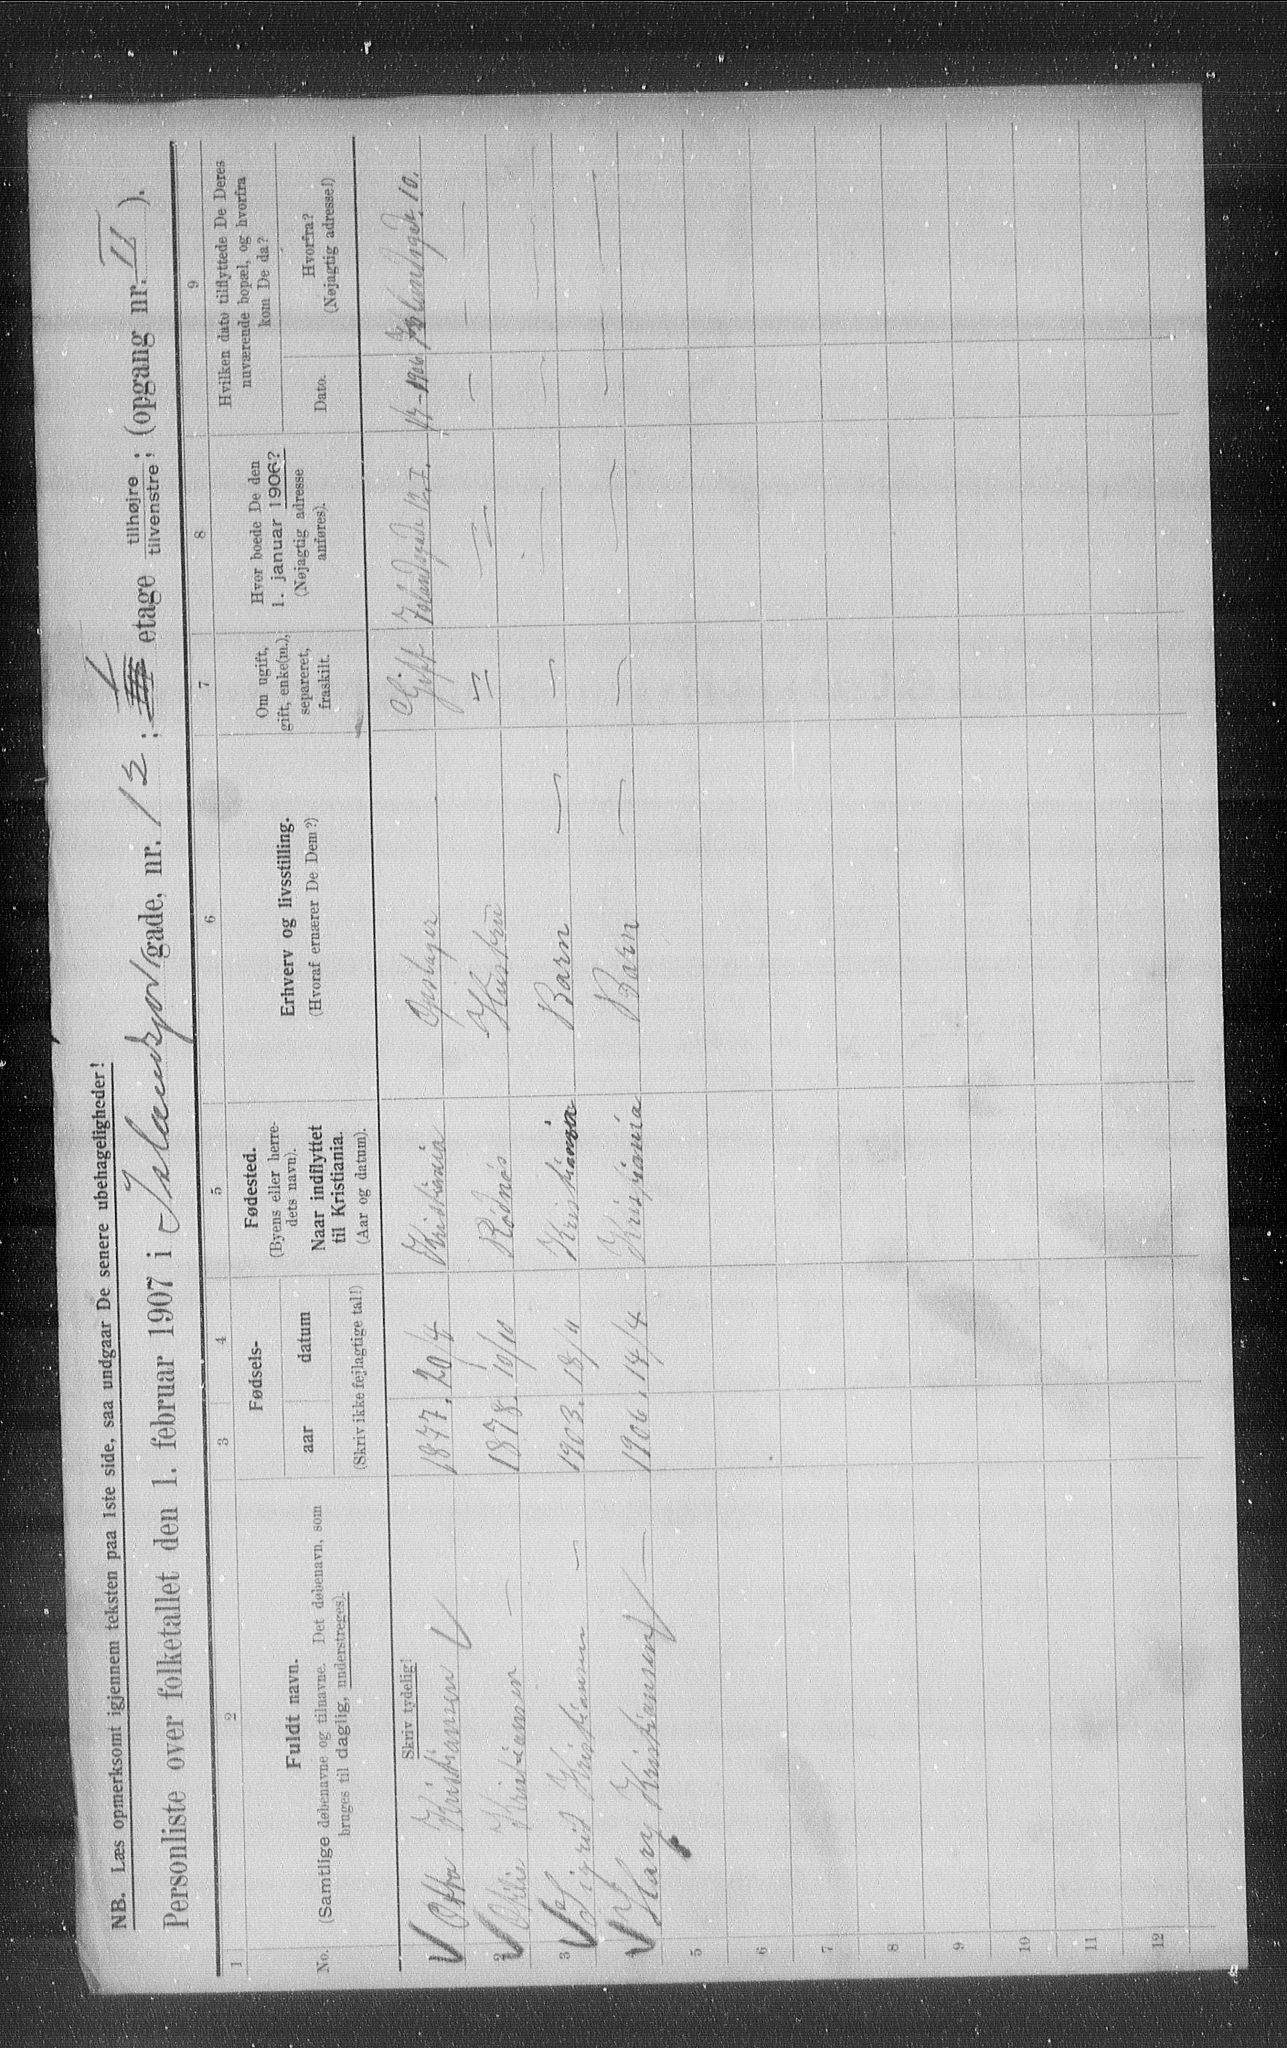 NB. Læs opmerksomt igjennem teksten paa 1ste side, saa undgaar De senere ubehageligheder!
Personliste over folketallet den 1. februar 1907 i gade, nr. 12; etage tilhøjre; tilvenstre; (opgang nr. II).
1 2 3 4 5 6 7 8 9
No.
Fuldt navn.
(Samtlige døbenavne og tilnavne. Det døbenavn, som
bruges til daglig, understreges).
Fødsels-
aar datum
(Skriv ikke fejlagtige tal!)
Fødested.
(Byens eller herre-
dets navn).
Naar indflyttet
til Kristiania.
(Aar og datum).
Erhverv og livsstilling.
(Hvoraf ernærer De Dem?)
Om ugift,
gift, enke(m.),
separeret,
fraskilt.
Hvor boede De den
1. januar 1906?
(Nøjagtig adresse
anføres).
Hvilken dato tilflyttede De Deres
nuværende bopæl, og hvorfra
kom De da?
Dato.
Hvorfra?
(Nøjagtig adresse!)
Skriv tydelig!
Kristiansen 1877. 20/4 Kristiania Gift 12. I. 1906 10.
2 Kristiansen 1878. 10/10 Hustru
3 Sigrid Kristiansen 1903. 18/11 Kristiania Barn —
Kristiansen — 1906. 14/4 Kristiania Barn —
5
6
7
8
9
10
11
12